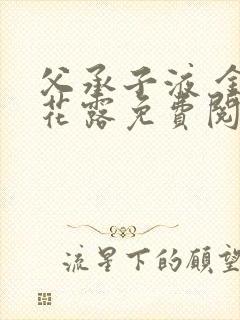 父承子液 金
花露免費閱
流星下的願望